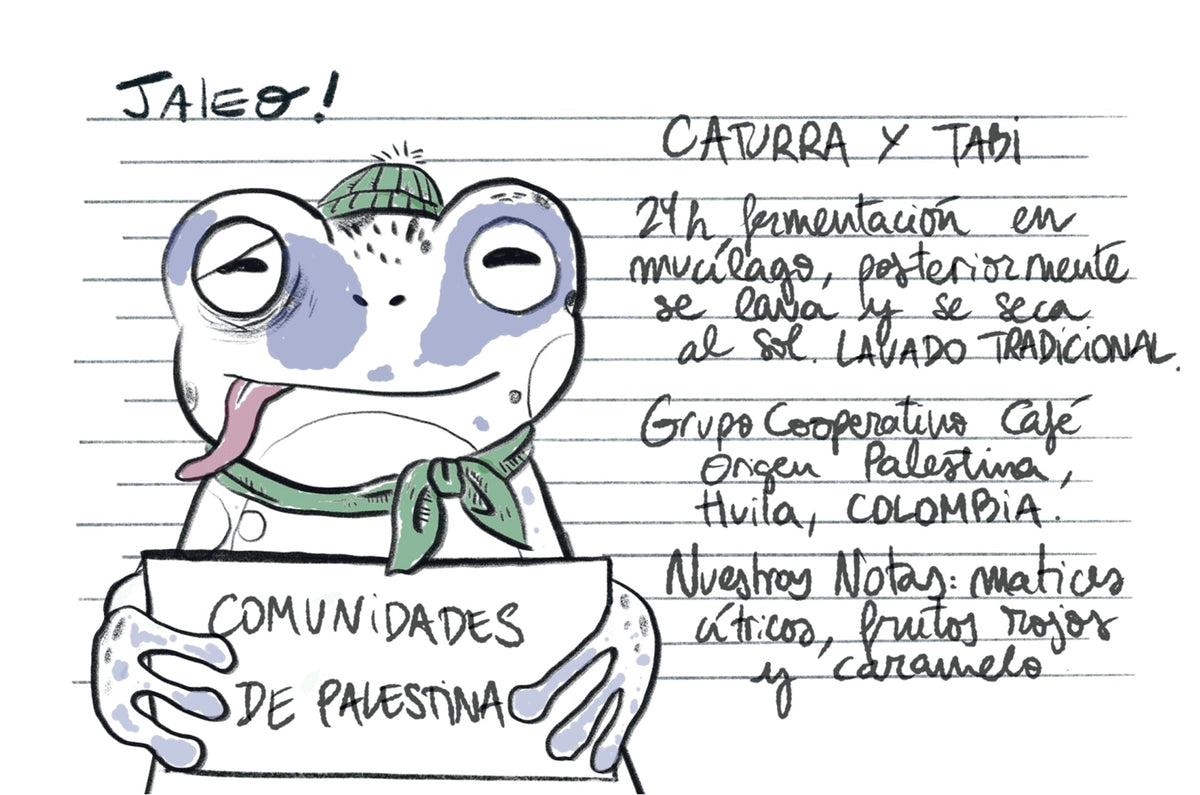 JALEO!
CATURRA Y TABI
24h fermentación en
mucílago, posteriormente
se lava y se seca
al sol. LAVADO TRADICIONAL.
Grupo Cooperativo Café
Origen Palestina,
Huila, COLOMBIA.
Nuestras Notas: matices
cítricos, frutos rojos
y caramelo
COMUNIDADES
DE PALESTINA